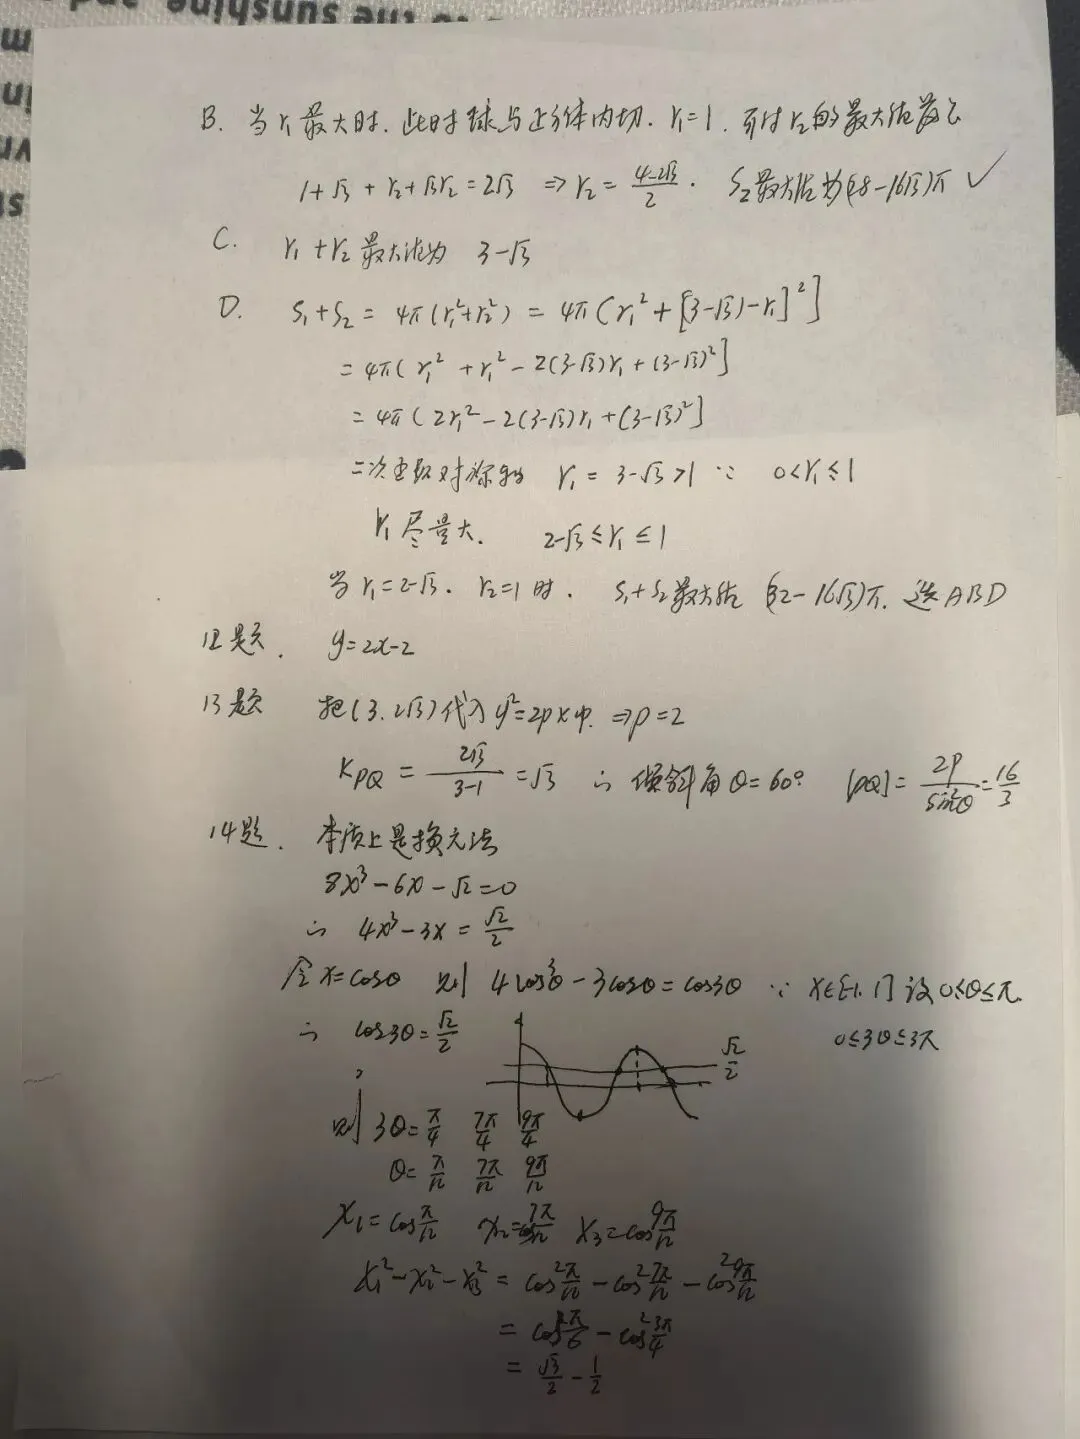 to the sunshine, and
B. 当r₁最大时,此时球与正方体内切. r₁=1. 可得r₂的最大值为
1+√3+r₂+√3r₂=2√3 ⇒ r₂=(4-2√3)/2. S₂最大值为(28-16√3)π ✓
C. r₁+r₂最大值为 3-√3
D. S₁+S₂=4π(r₁²+r₂²)=4π(r₁²+[3-√3)-r₁]²]
=4π(r₁²+r₁²-2(3-√3)r₁+(3-√3)²]
=4π(2r₁²-2(3-√3)r₁+(3-√3)²]
二次函数对称轴 r₁=3-√3>1 ∵ 0<r₁≤1
r₁尽量大. 2-√3≤r₁≤1
当r₁=2-√3. r₂=1时. S₁+S₂最大值(32-16√3)π. 选ABD
12题. y=2x-2
13题 把(3.2√3)代入y²=2px中. ⇒p=2
K_PQ=2√3/(3-1)=√3 ∴倾斜角θ=60° |PQ|=2P/sin²θ=16/3
14题. 本质上是换元法
8x³-6x-√2=0
∴ 4x³-3x=√2/2
令x=cosθ 则 4cos³θ-3cosθ=cos3θ ∵ x∈[-1.1] 设0≤θ≤π.
∴ cos3θ=√2/2 √2/2 0≤3θ≤3π
则 3θ=π/4 7π/4 9π/4
θ=π/12 7π/12 9π/12
x₁=cosπ/12 x₂=cos7π/12 x₃=cos9π/12
x₁²-x₂²-x₃²=cos²π/12-cos²7π/12-cos²9π/12
=cosπ/6-cos²3π/4
=√3/2-1/2